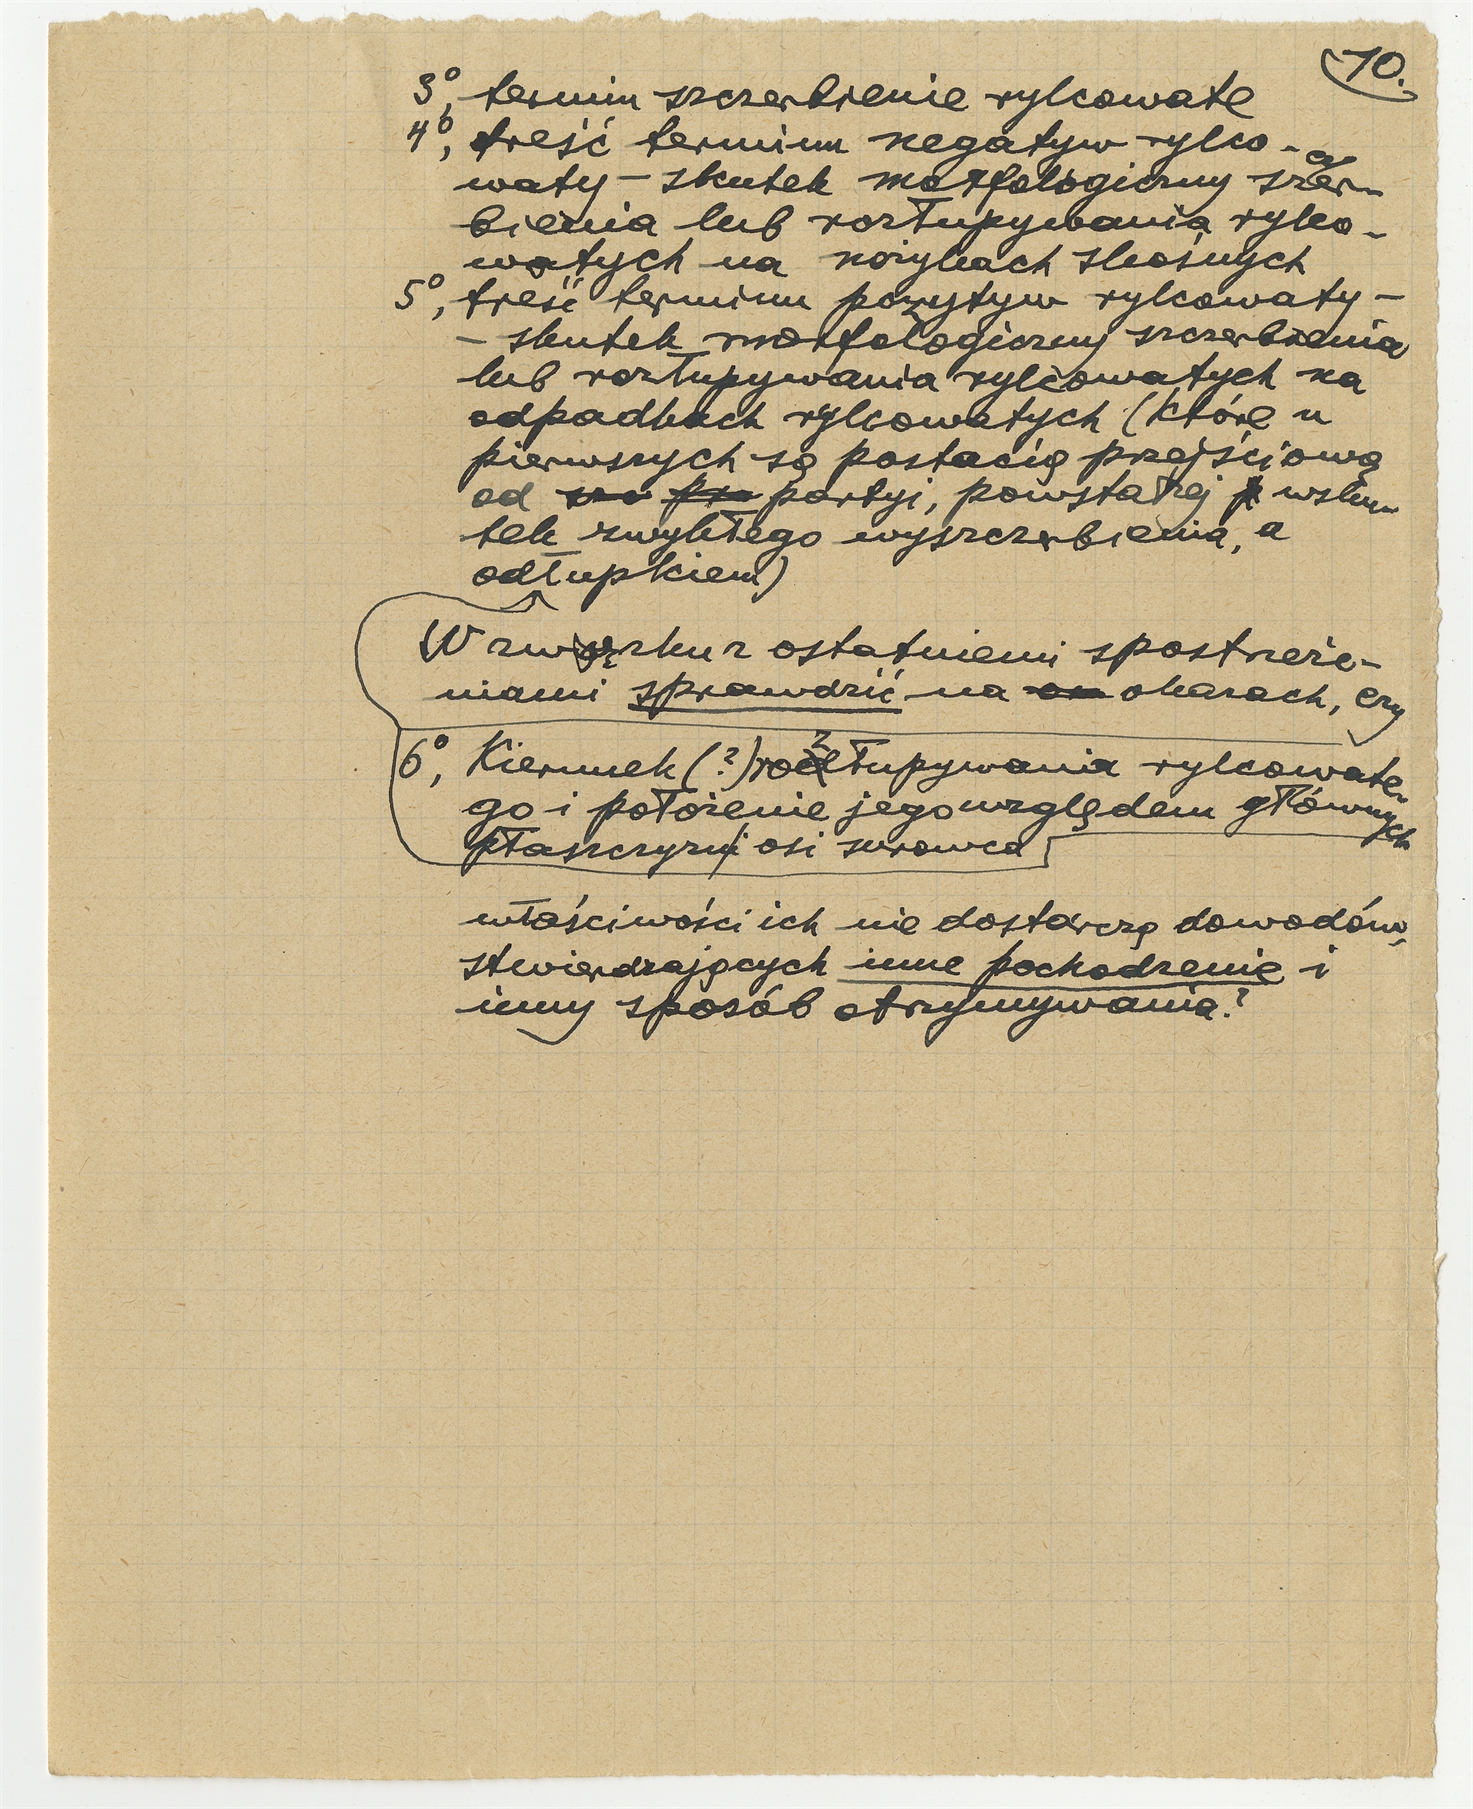 10.
3°, termin szczerbienie rylcowate
4°, treść terminu negatyw rylco-
waty – skutek morfologiczny szczer-
bienia lub rozłupywania rylco-
watych na nożykach skośnych
5°, treść terminu pozytyw rylcowaty –
– skutek morfologiczny szczerbienia
lub rozłupywania rylcowatych na
odpadkach rylcowatych (które u
pierwszych są postacią przejściową
od partyi, powstałej wsku-
tek zwykłego wyszczerbienia, a
odłupkiem)
W związku z ostatniemi spostrzeże-
niami sprawdzić na okazach, czy
6°, Kierunek (?) rozłupywania rylcowate-
go i położenie jego względem głównych
płaszczyzn i osi surowca
właściwości ich nie dostarczą dowodów,
stwierdzających inne pochodzenie i
inny sposób otrzymywania?